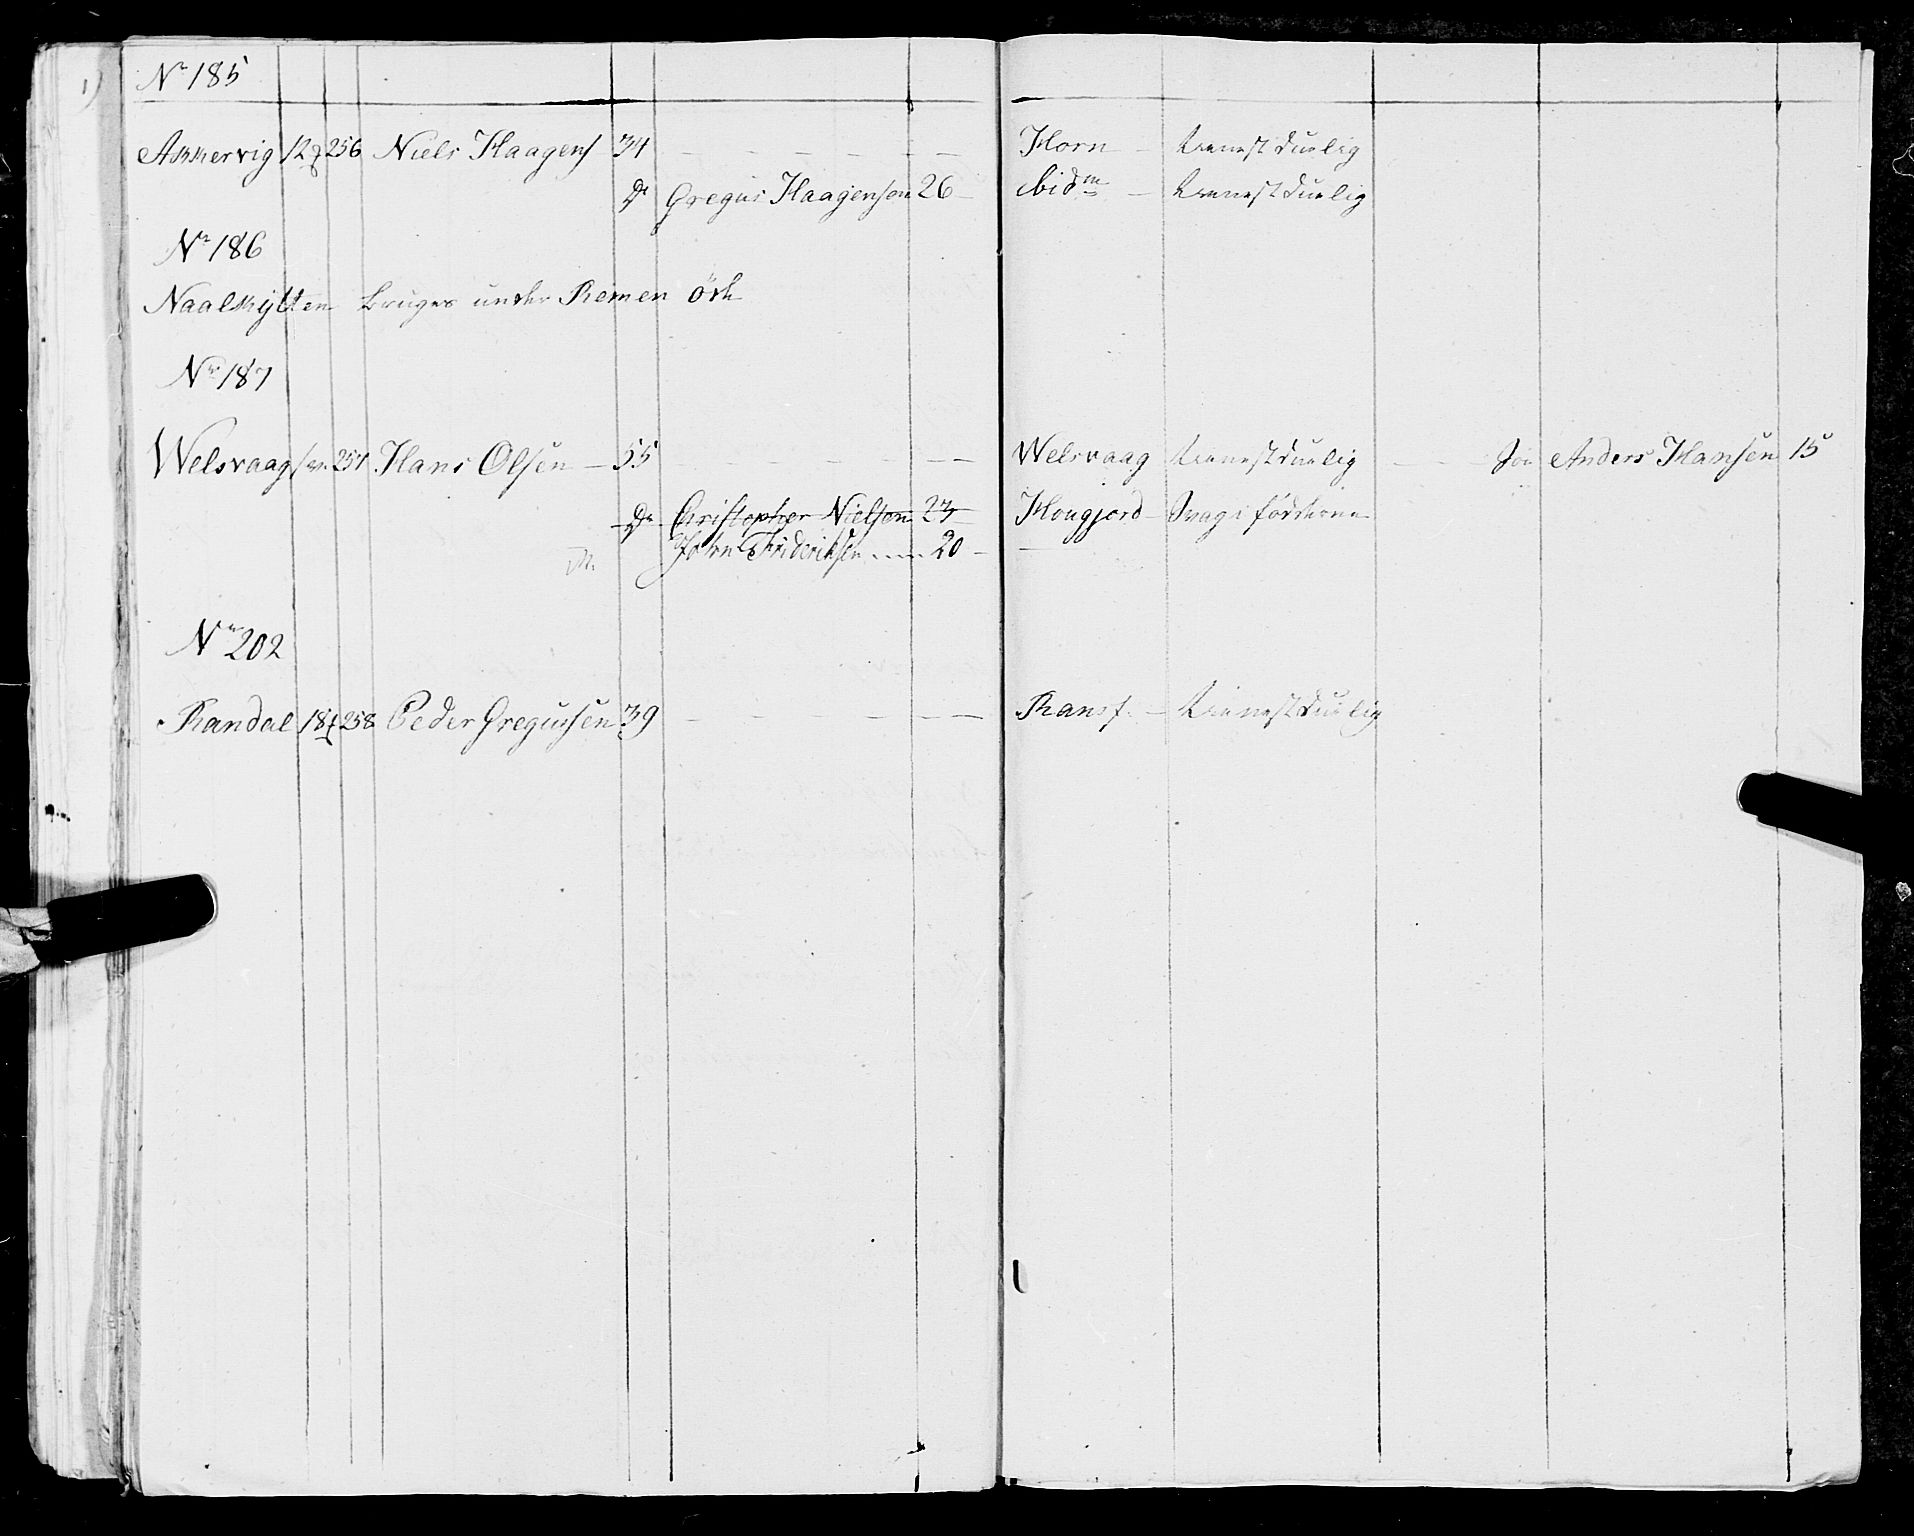 Nr 185
Akkervig 12 256 Niels Haagens 34 Horn tienestduelig
Dr Gregus Haagensen 26 ibidm tienestduelig
Nr 186
Naalskytten bruges under Remen öde
Nr 187
Welsvaag 257 Hans Olsen 55 Welsvaag tienestduelig Søn Anders Hansen 15
Dr Christopher Nielsen 23 Hougjord Svag i födderne
John Frideriksen 20
Nr 202
Randal 18 258 Peder Gregussen 39 Ransf. tienestduelig